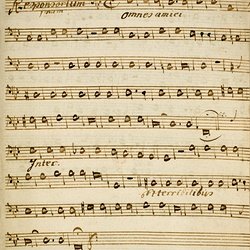 Responsorium
Omnes amici
Inter.
terribilibus